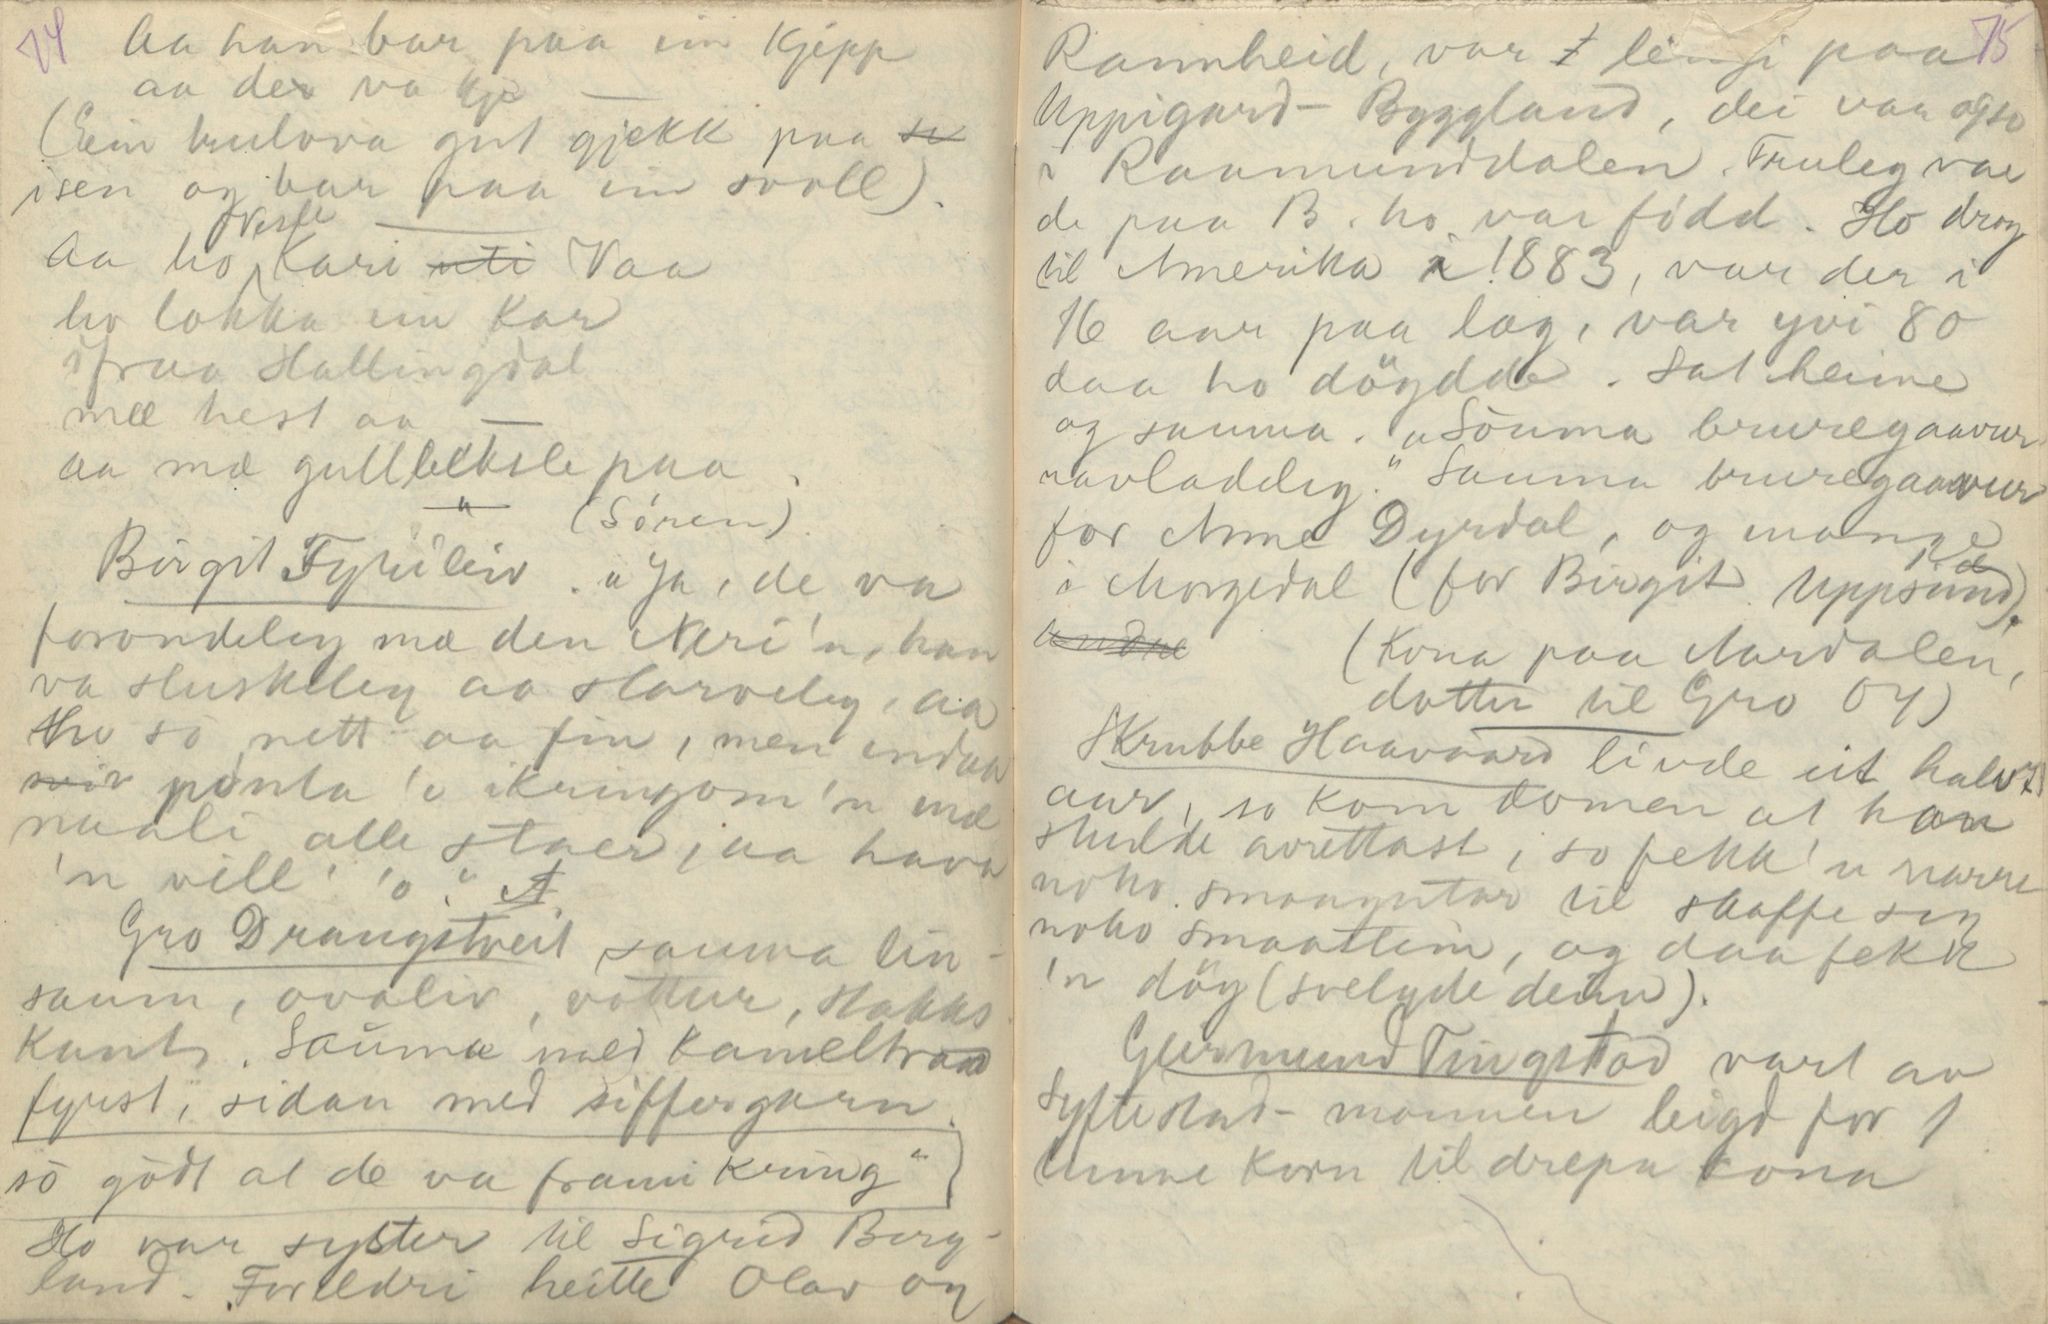 74
Aa han bar paa ein Kjepp
aa der va kje —
(Ein trulova gut gjekk paa
isen og bar paa ein svoll).
Aa ho Vesle Kari uti Vaa
ho lokka ein Kar
ifraa Hallingdal
mæ hest aa —
aa mæ gullbeksle paa.
— " — (Sóren).
Birgit Tyrilid. "Ja, de va
forondeleg mæ den Neri'n, han
va sluskeleg aa slarveleg, aa
ho so nett aa fin, men endaa
pönta 'o ikringom 'n mæ
naali alle staer, aa hava
'n vill' 'o."
Gro Draugstveit sauma lin-
saum, ovaliv, vottur, stakke
Kant. Sauma med Kameltraad
fyrst, sidan med siffergarn.
so godt at de va frami Kring"
Ho var syster til Sigrid Berg-
land. Foreldri heitte Olav og
75
Rannheid, var lengi paa
Uppigard-Byggland, dei var ogso
i Raamunddalen. Truleg var
de paa B. ho var född. Ho drog
til Amerika i 1883, var der i
16 aar paa lag, var yvi 80
daa ho döydde. Sat heime
og sauma. "Souma bruregaavur
navladdig." Sauma bruregaavur
for Anne Dyrdal, og mange
i Morgedal (for Birgit Uppsund).
andre
(Kona paa Aardalen,
dotter til Gro Oy)
Skrubbe Haavaard livde eit halvt
aar, so kom domen at han
skulde avrettast, so fekk 'n narre
noko smaagutar til skaffe seg
noko smaatlein, og daa fekk
'n döy (svelgde dein).
Geirmund Tingstad vart av
Syftestad-mannen leigd for 1
tunne Korn til drepa kona